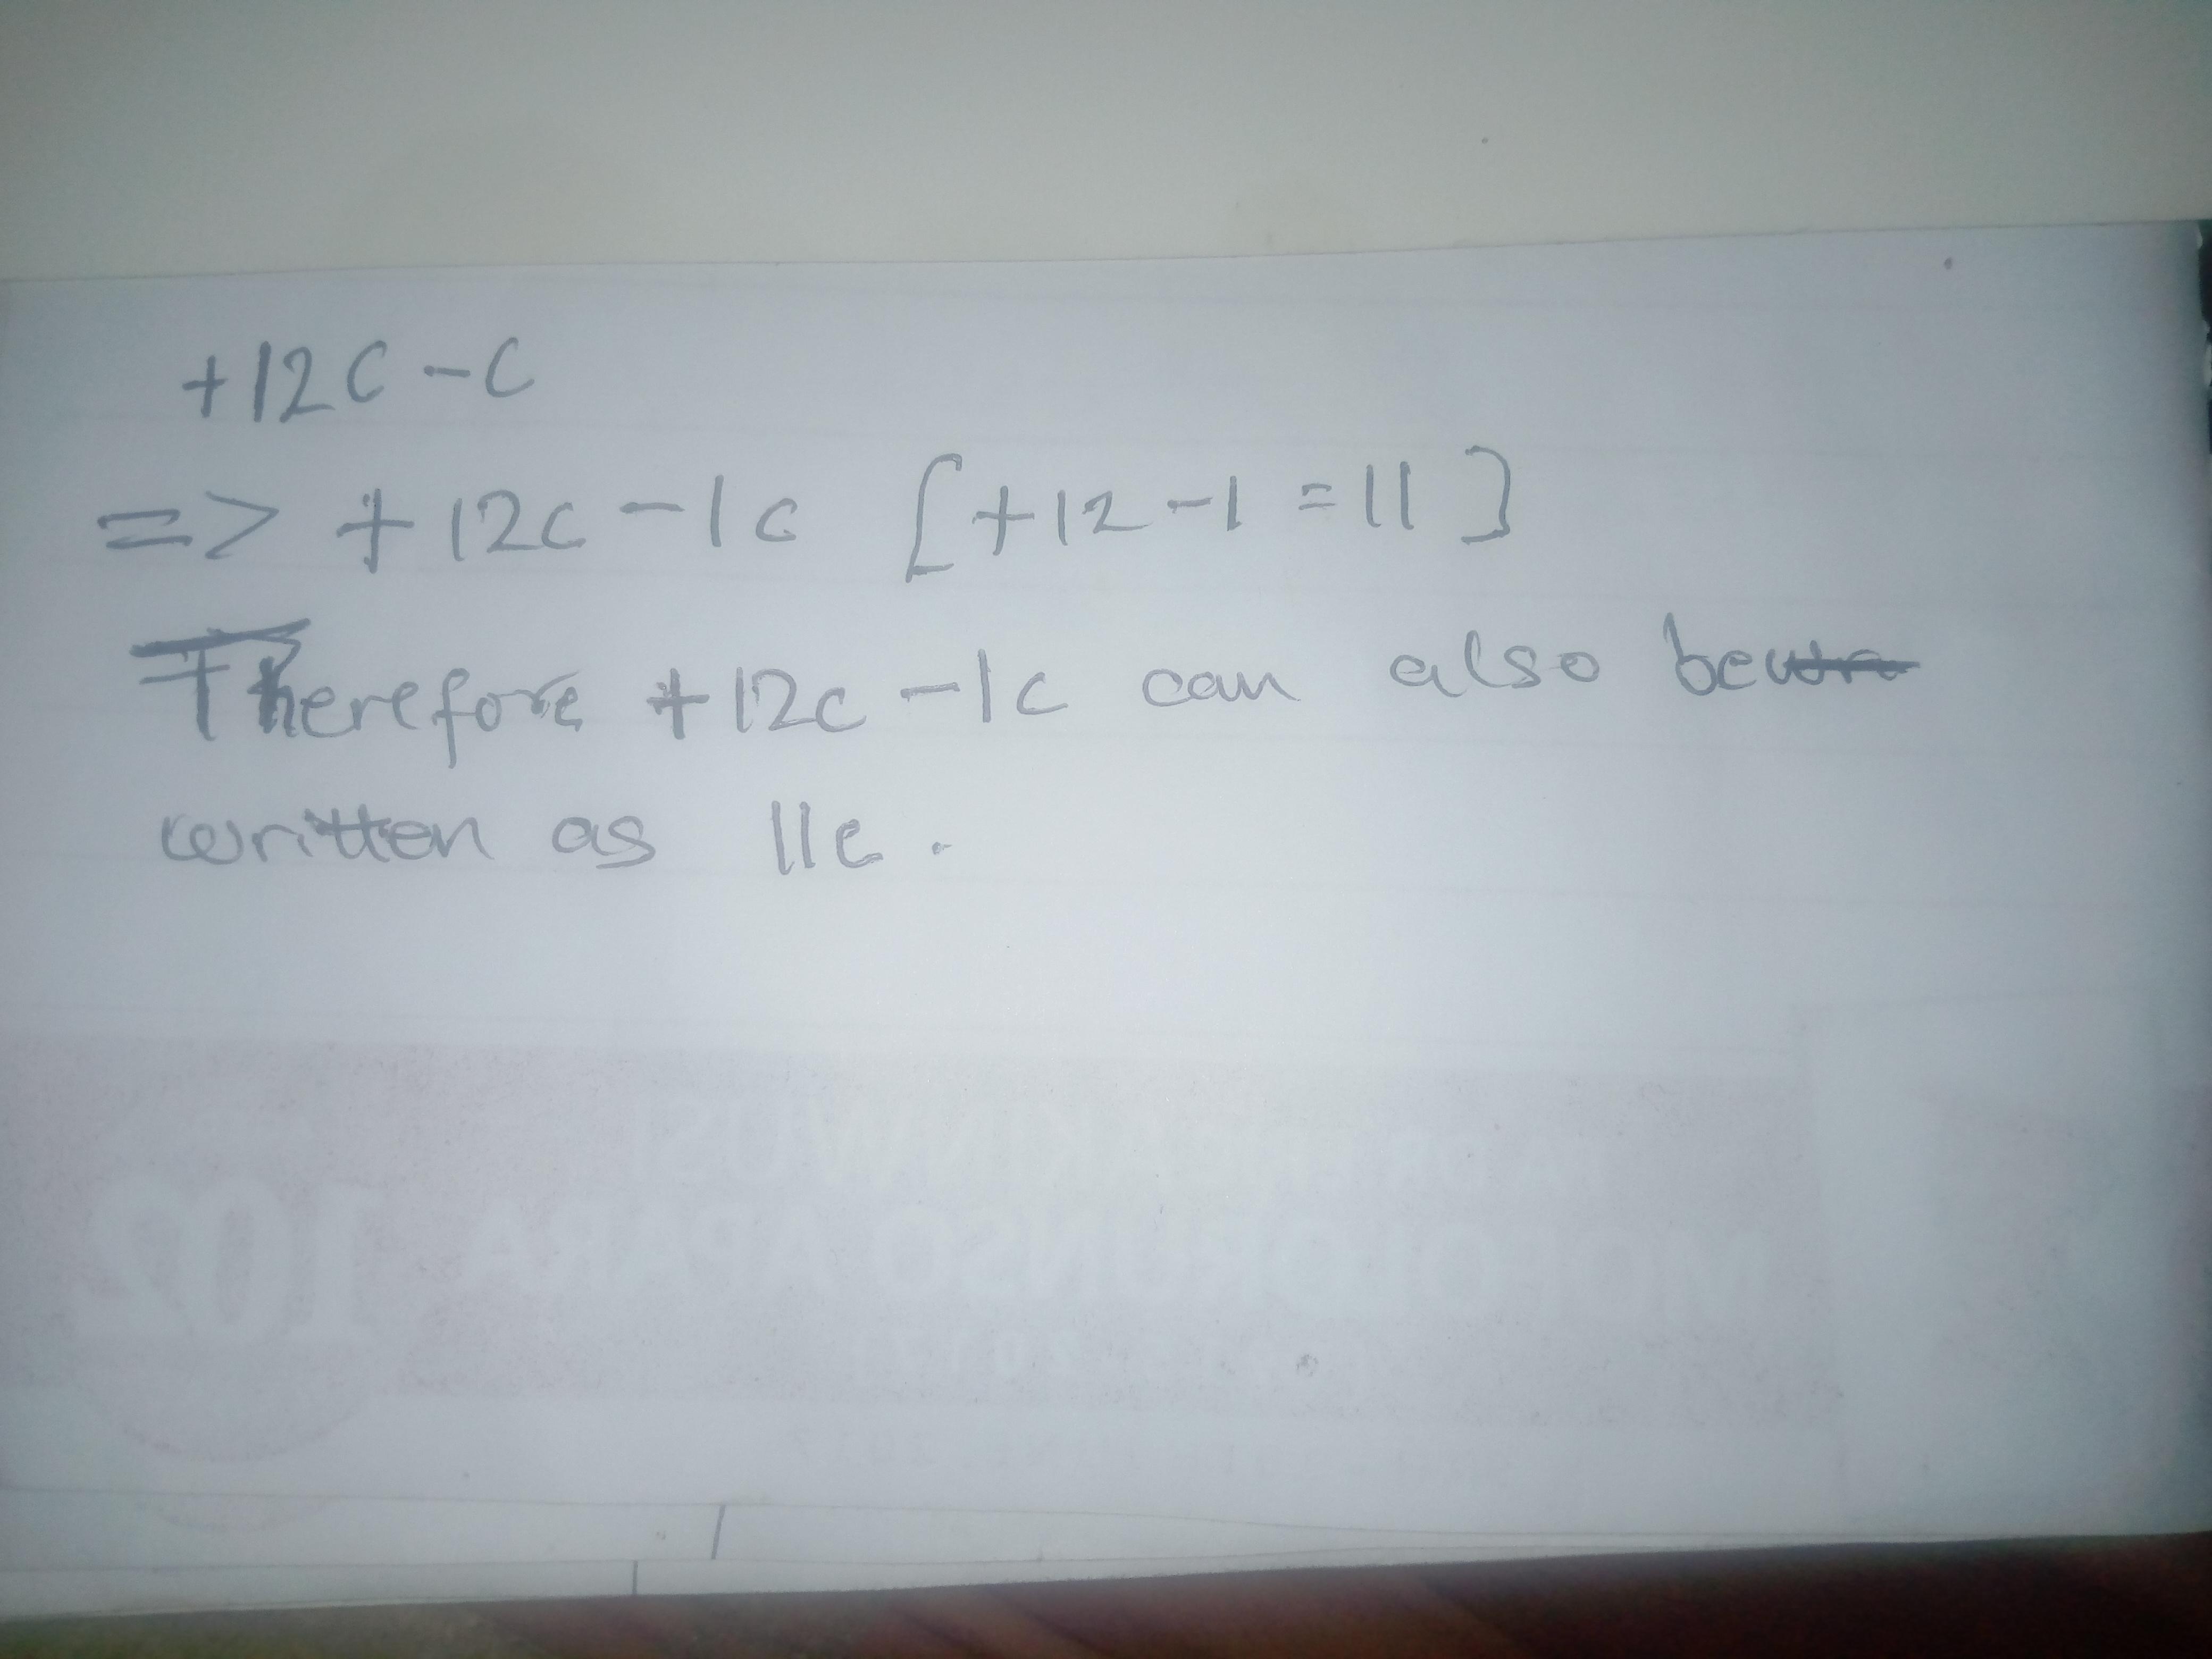 +12c-c
=> +12c-1c [+12-1=11]
Therefore +12c-1c can also be
written as 11c.